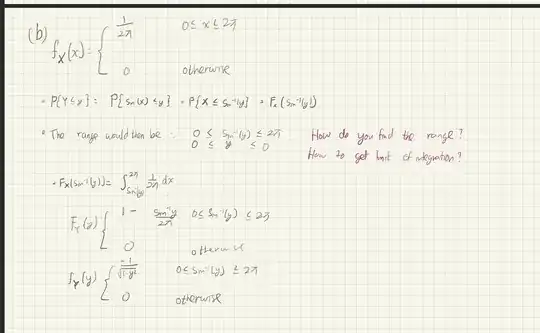 (b) f_X(x) = { 1/2π 0 ≤ x ≤ 2π
0 otherwise
= P[Y ≤ y] = P[sin(x) ≤ y] = P[X ≤ sin⁻¹(y)] = F_x(sin⁻¹(y))
The range would then be : 0 ≤ sin⁻¹(y) ≤ 2π How do you find the range?
0 ≤ y ≤ 0 How to get limit of integration?
F_X(sin⁻¹(y)) = ∫_{sin⁻¹(y)}^{2π} 1/2π dx
F_Y(y) { 1 - sin⁻¹y/2π 0 ≤ sin⁻¹(y) ≤ 2π
0 otherwise
f_Y(y) { -1/√(1-y²) 0 ≤ sin⁻¹(y) ≤ 2π
0 otherwise